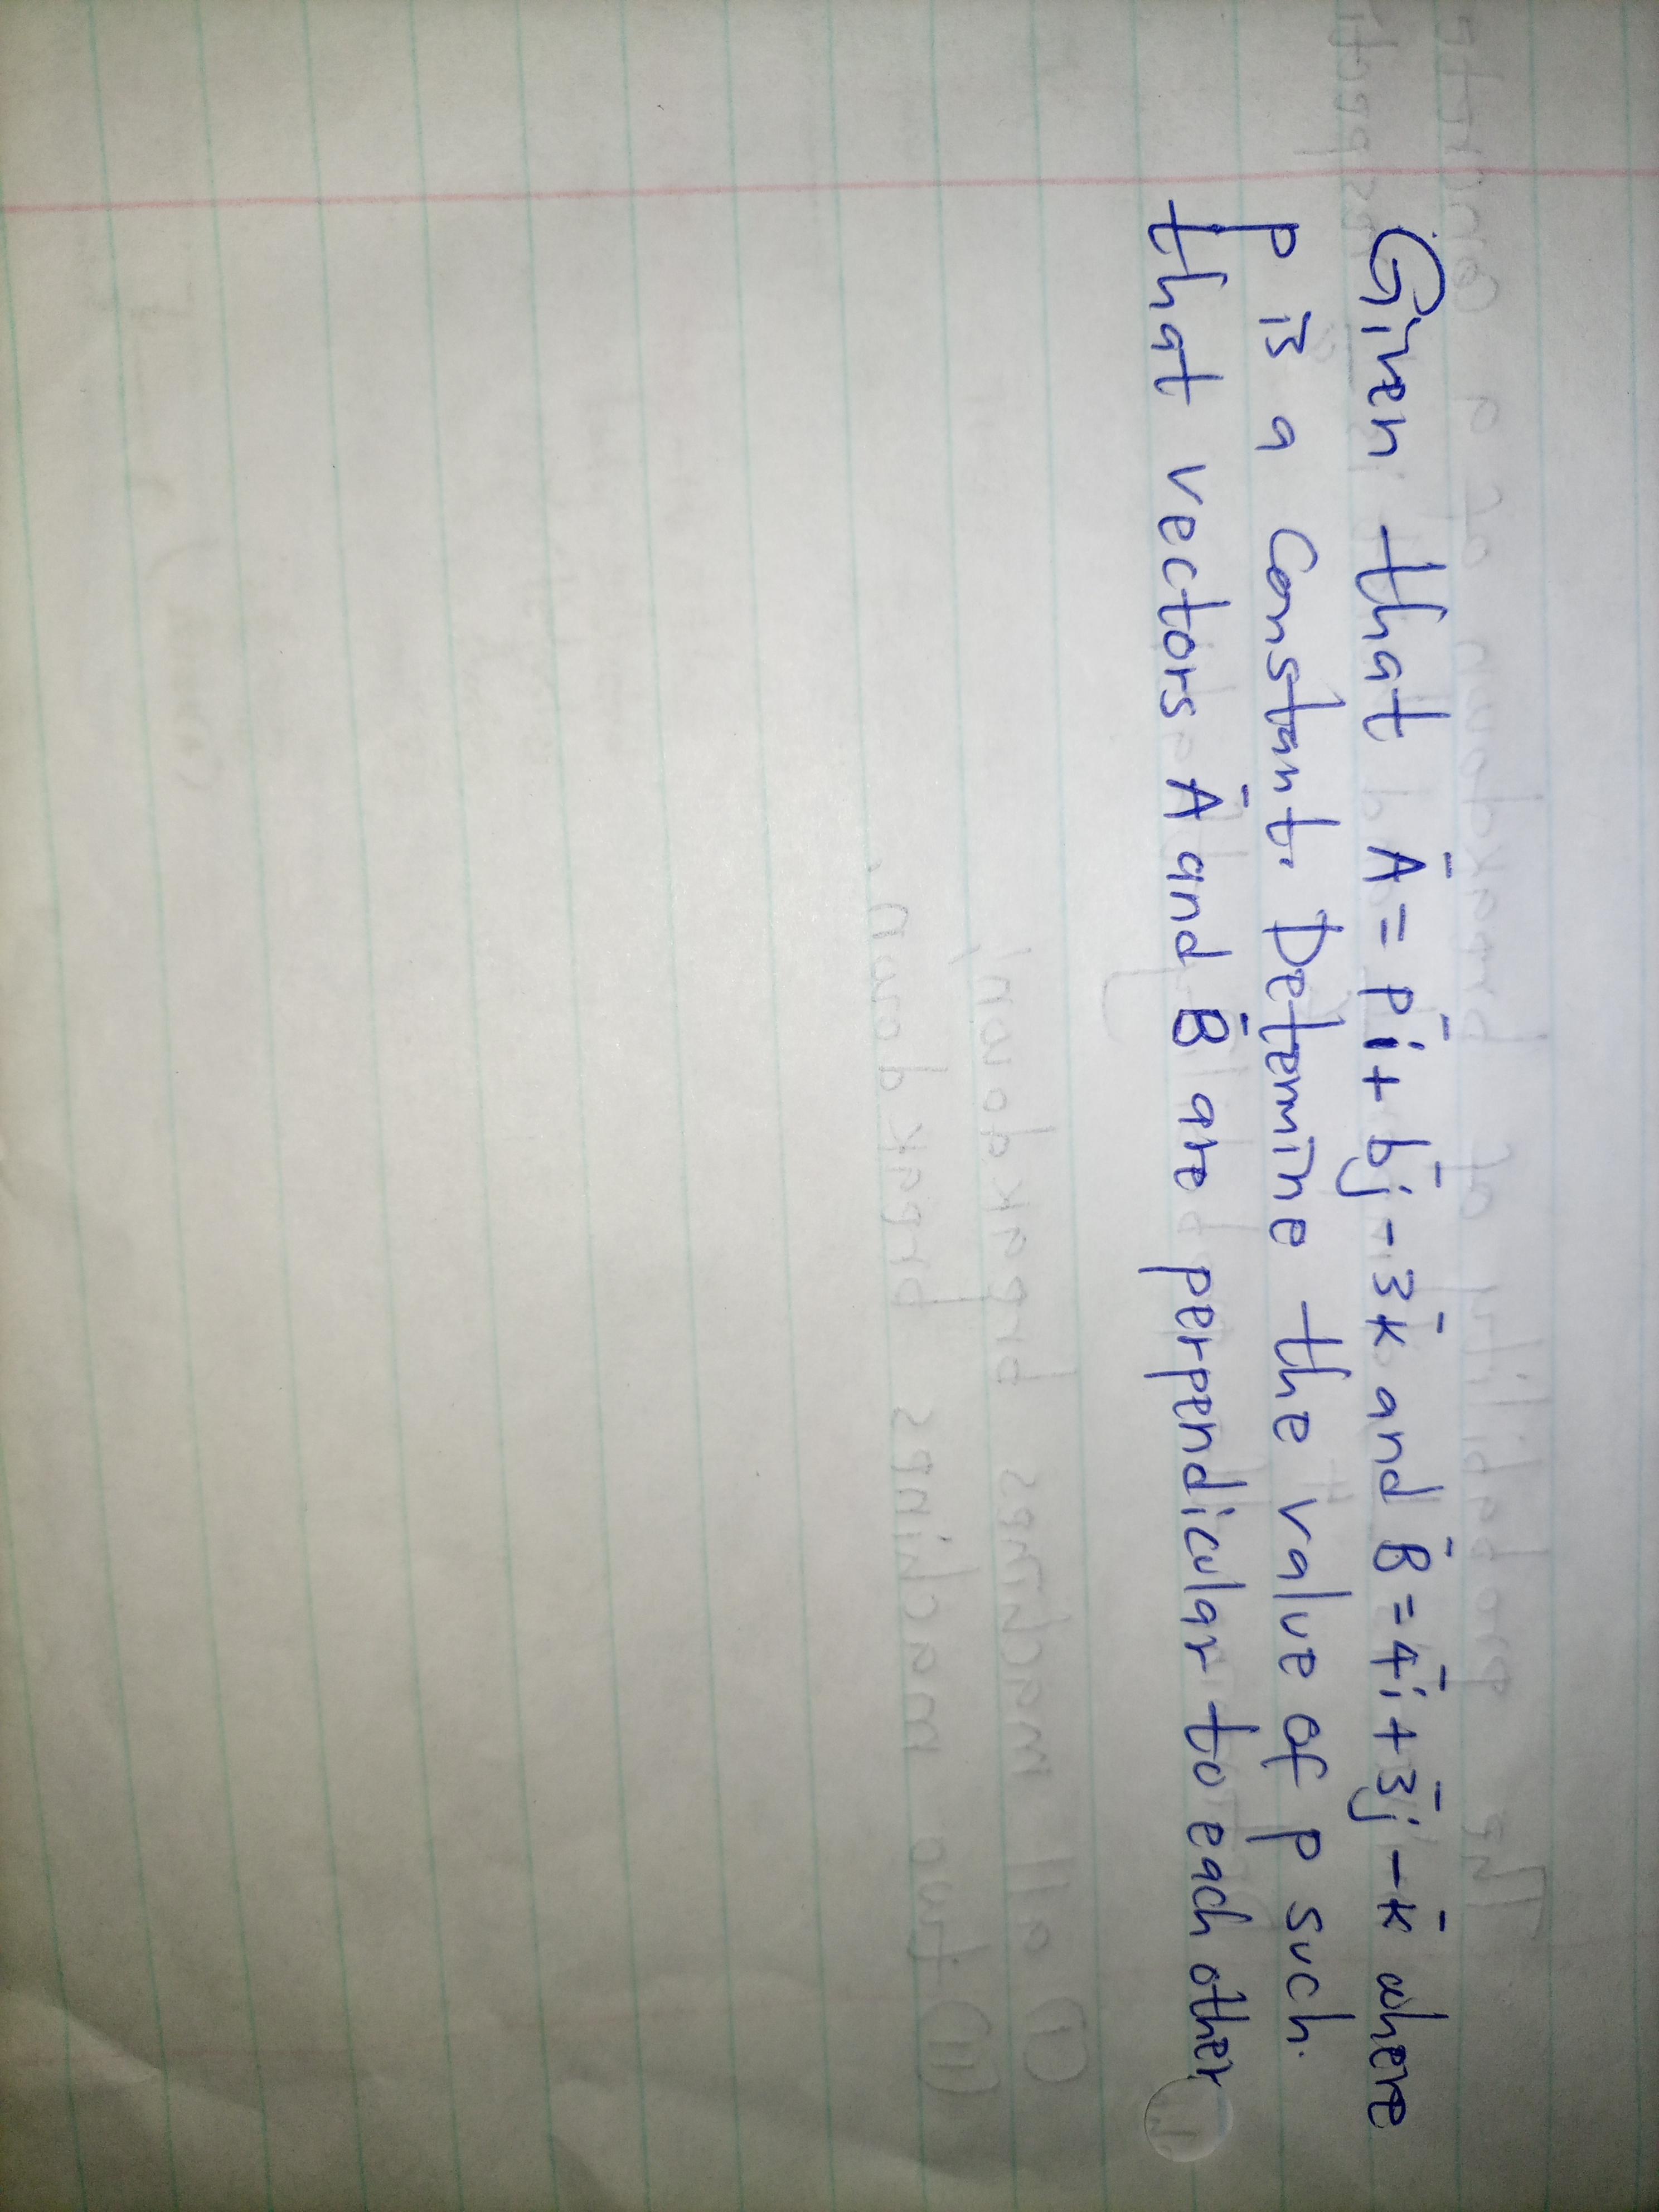 Given that Ā = pī + bj̄ - 3k̄ and B̄ = 4ī + 3j̄ - k̄ where
p is a constant. Determine the value of p such.
that vectors Ā and B̄ are perpendicular to each other